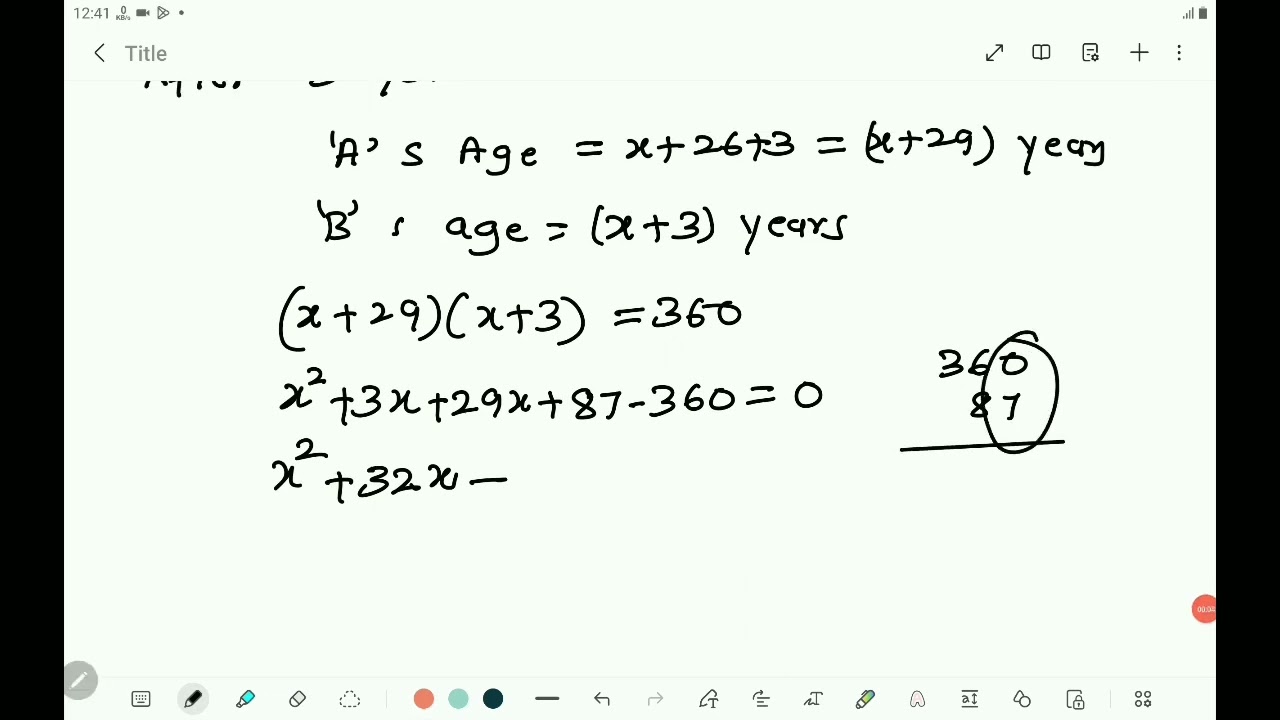 12:41 0 KB/s
Title
'A' s Age = x+26+3 = (x+29) years
'B' s age = (x+3) years
(x+29)(x+3) = 360
x²+3x+29x+87-360 = 0
x²+32x-
360
87
00:0